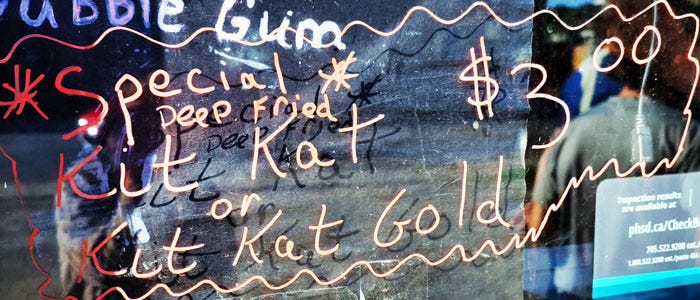 Bubble Gum
* Special *
Deep Fried
$3.00
Kit Kat
or
Kit Kat Gold
Inspection results
are available at
phsd.ca/CheckB
705.522.9200
1.866.522.9200